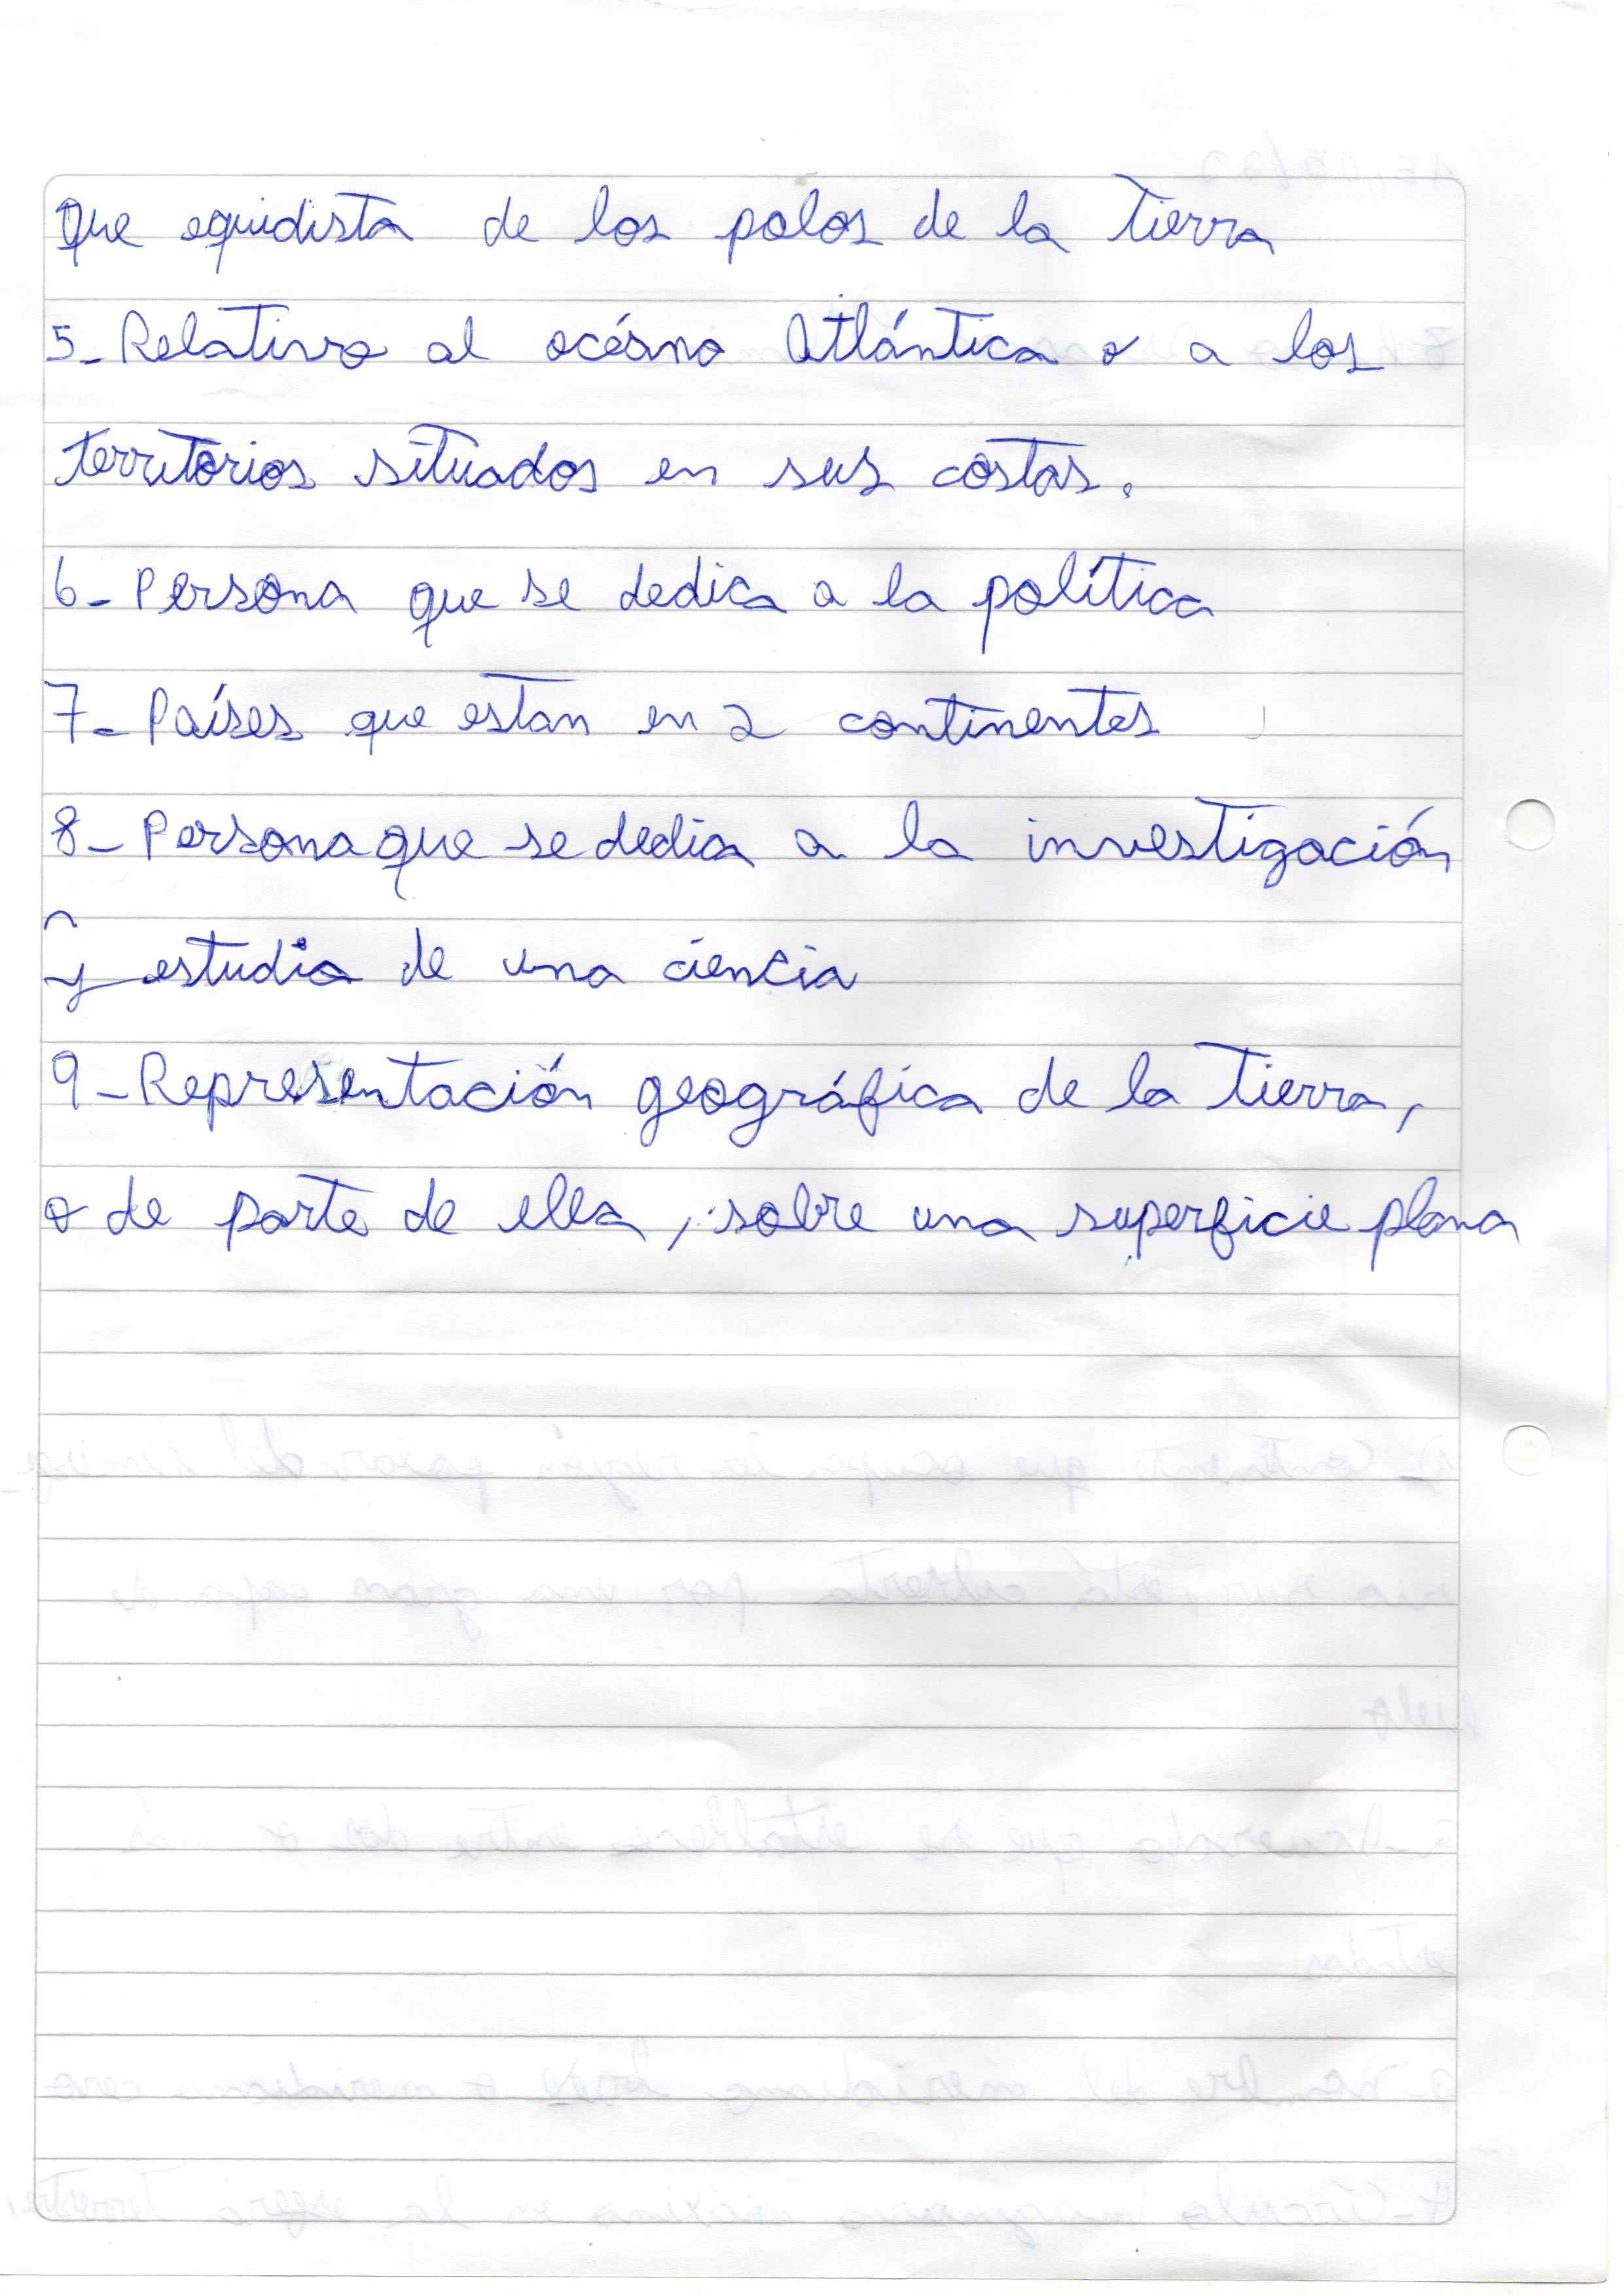 Que equidista de los polos de la Tierra
5- Relativo al océano Atlántica o a los
territorios situados en sus costas.
6- Persona que se dedica a la política
7- Países que estan en 2 continentes
8- Persona que se dedica a la investigación
y estudia de una ciencia
9- Representación geográfica de la Tierra,
o de parte de ella, sobre una superficie plana